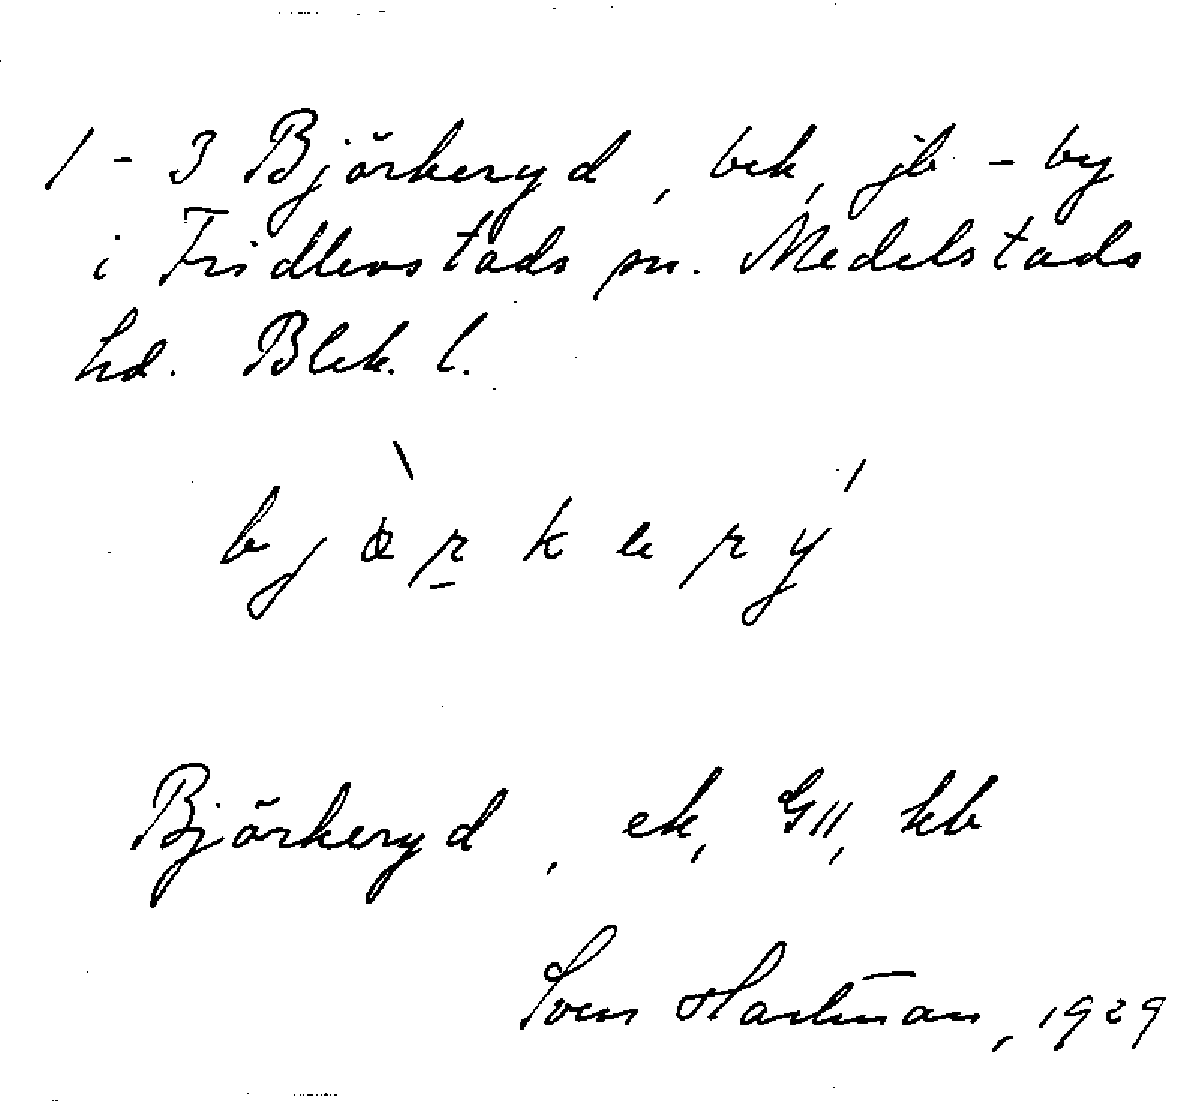 1 - 3 Björkeryd, bek, jb - by
i Fridlevstads sn. Medelstads
hd. Blek. l.
Björkeryd, ek, GII, kb
Sven Hartman, 1929